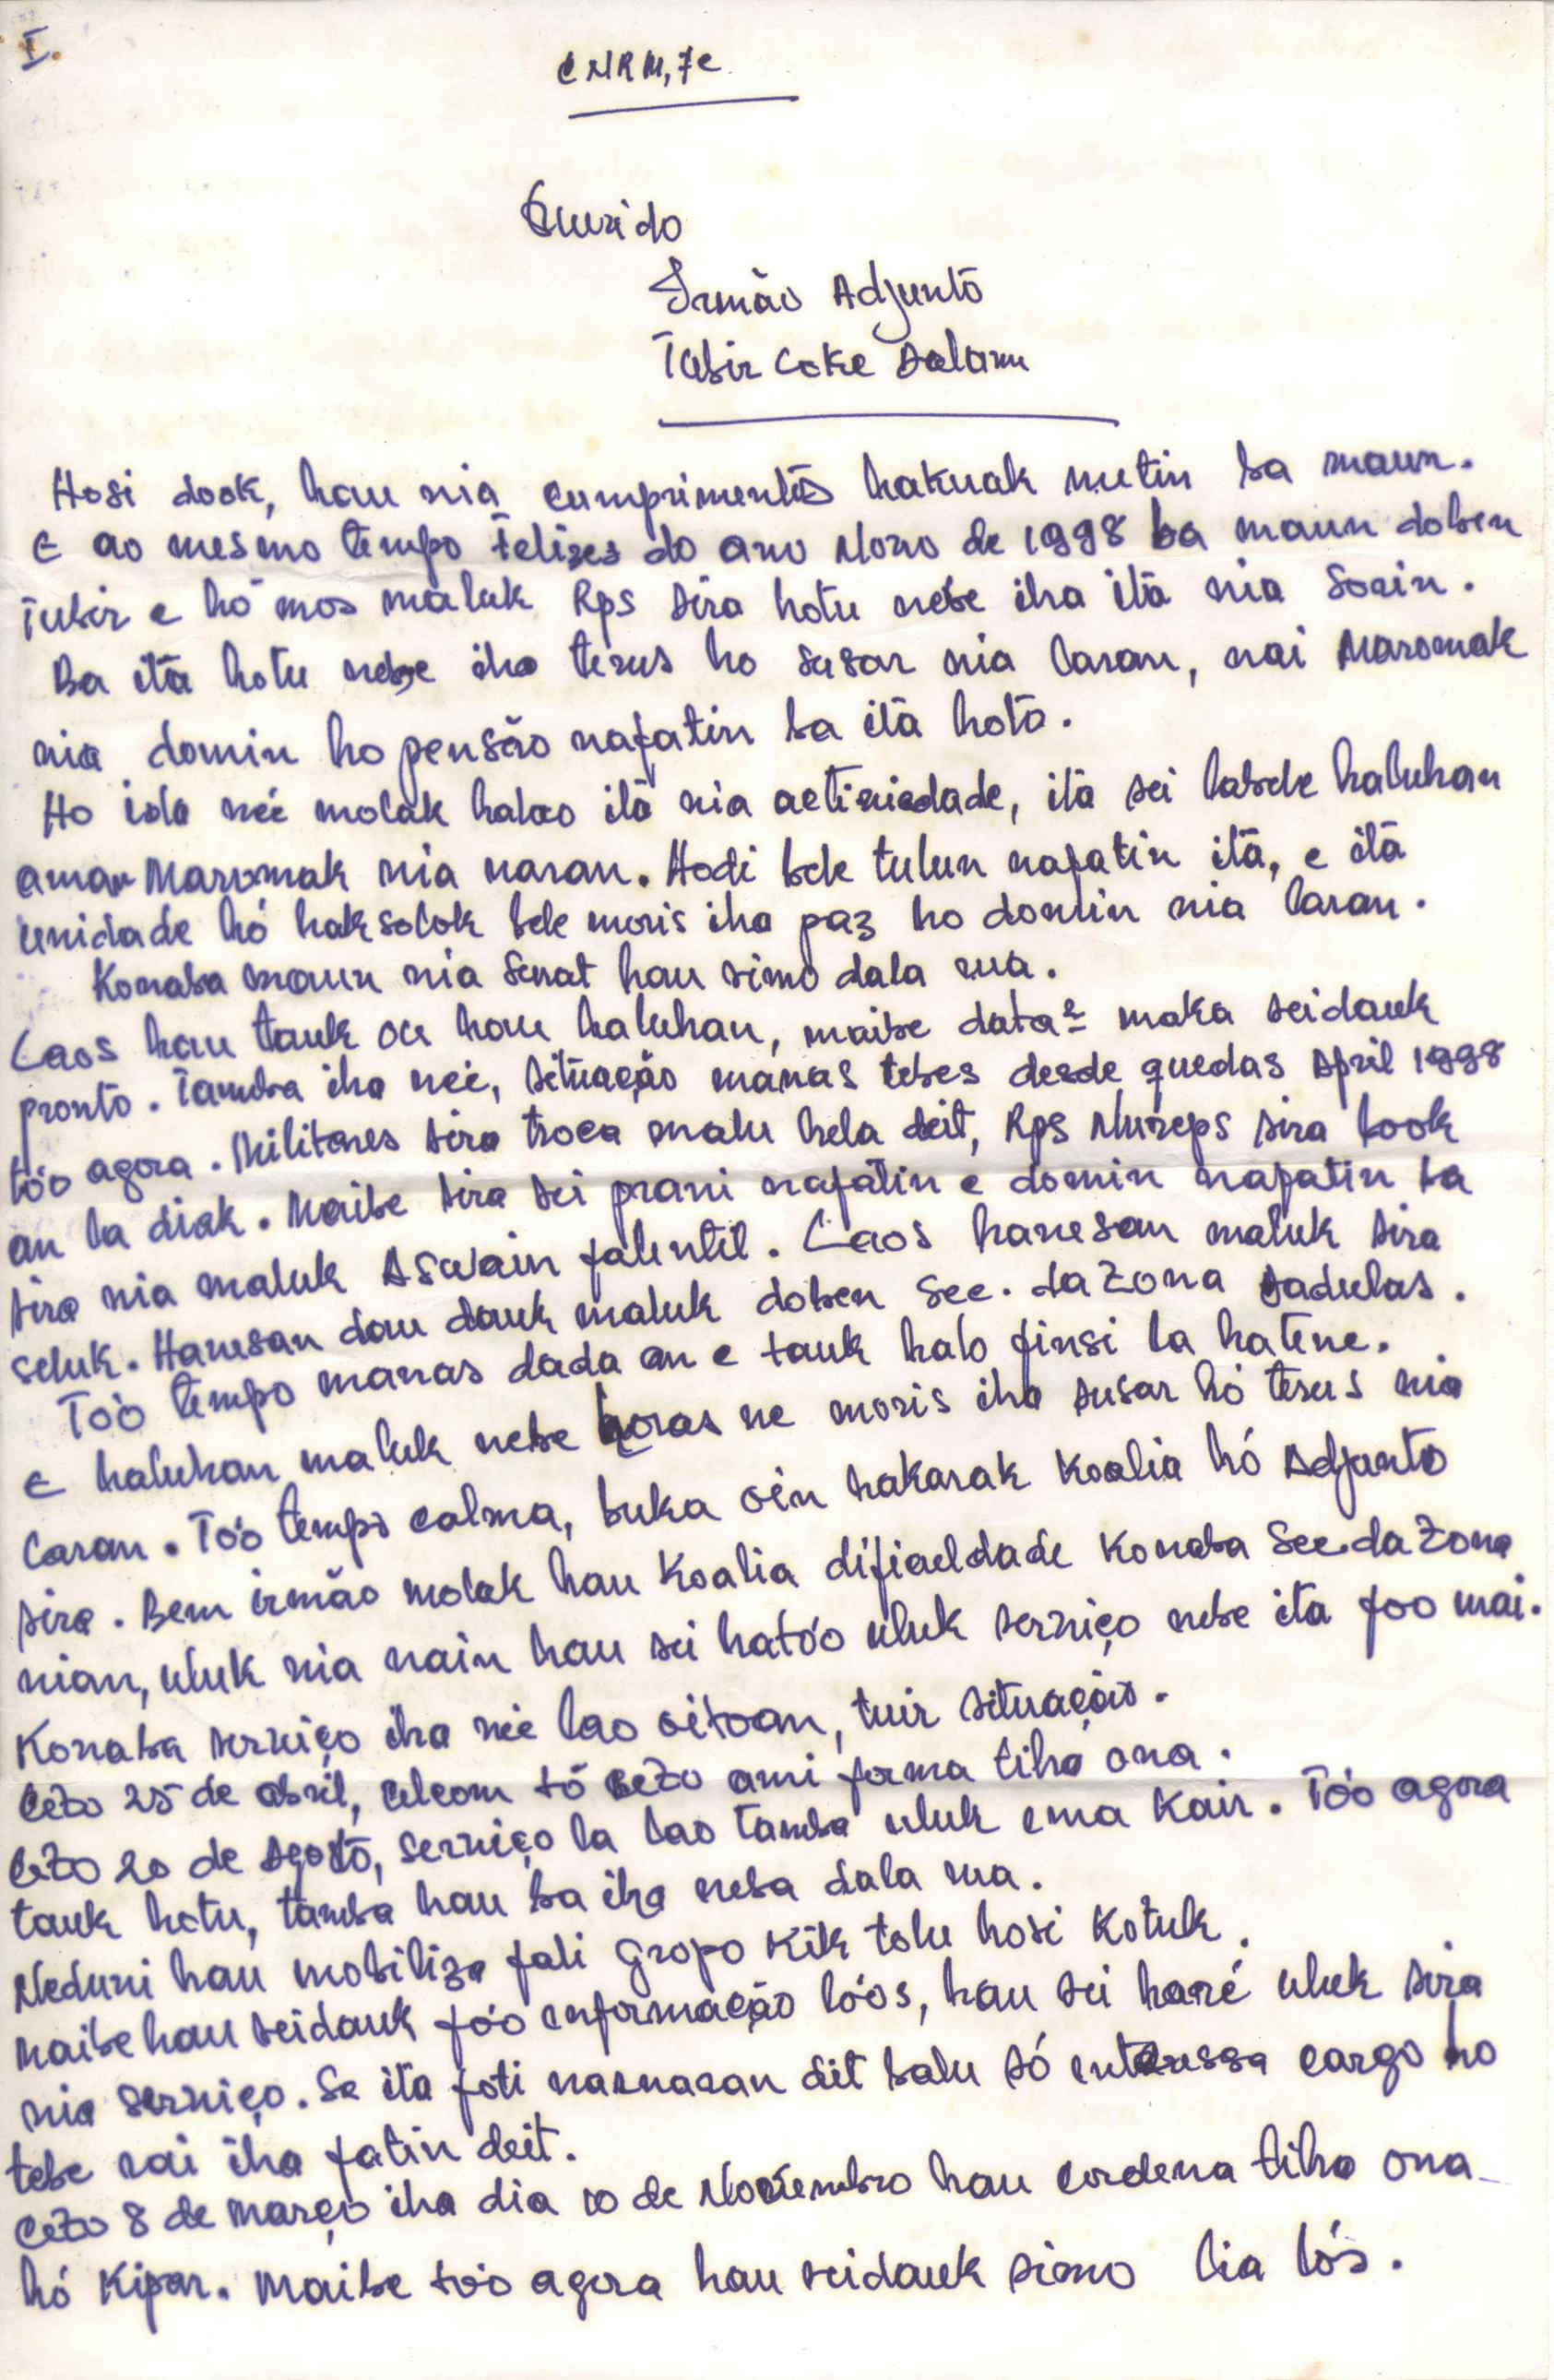 I.
CNRM, 7e
Querido
Irmão Adjunto
Tubir Coke Salamu
Hosi dook, hau nia cumprimentos hakuak metin ba maun.
E ao mesmo tempo Felises do ano Novo de 1998 ba maun doben
Tubir e hó mos maluk Rps sira hotu nebe iha ita nia Sorin.
Ba ita hotu nebe iha terus ho susar nia laran, nai Maromak
nia domin ho pensão nafatin ba ita hoto.
Ho ida neé molok halao ita nia actividade, ita sei labele haluhan
aman Maromak nia naran. Hodi bele tulun nafatin ita, e ita
unidade hó haksolok bele moris iha paz ho domin nia laran.
Konaba maun nia Surat hau simo dala rua.
Laos hau tauk ou hau haluhan, maibe data² maka seidauk
pronto. Tamba iha neé, situação manas tebes desde quedas April 1998
tóo agora. Militares sira troca malu hela deit, Rps Nureps sira book
an la diak. Maibe sira sei prani nafatin e domin nafatin ba
sira nia maluk Aswain falentil. Laos hanesan maluk sira
seluk. Hanesan dau dauk maluk doben Sec. da Zona Sadulas.
Tóo tempo manas dada an e tauk halo finsi la hatene.
E haluhan maluk nebe horas ne moris iha susar hó terus nia
laran. Tóo tempo calma, buka oin hakarak koalia hó Adjunto
sira. Bem irmão molok hau koalia dificuldade Konaba Sec. da Zona
nian, uluk nia nain hau sei hatóo uluk serviço nebe ita foo mai.
Konaba serviço iha neé lao oitoan, tuir situação.
Cezo 25 de abril, celcom tó cezo ami forma tiha ona.
Cezo 20 de Agosto, serviço la lao tamba uluk ema Kair. Tóo agora
tauk hotu, tamba hau ba iha neba dala rua.
Neduni hau mobiliza fali Gropo Kik tolu hosi Kotuk.
Maibe hau seidauk fóo informação lóos, hau sei haré uluk sira
nia serviço. Se ita foti narnaran deit balu só interessa cargo no
tebe rai iha fatin deit.
Cezo 8 de março iha dia 10 de Novembro hau cordena tiha ona
hó Kipar. Maibe tóo agora hau seidauk simo lia lós.